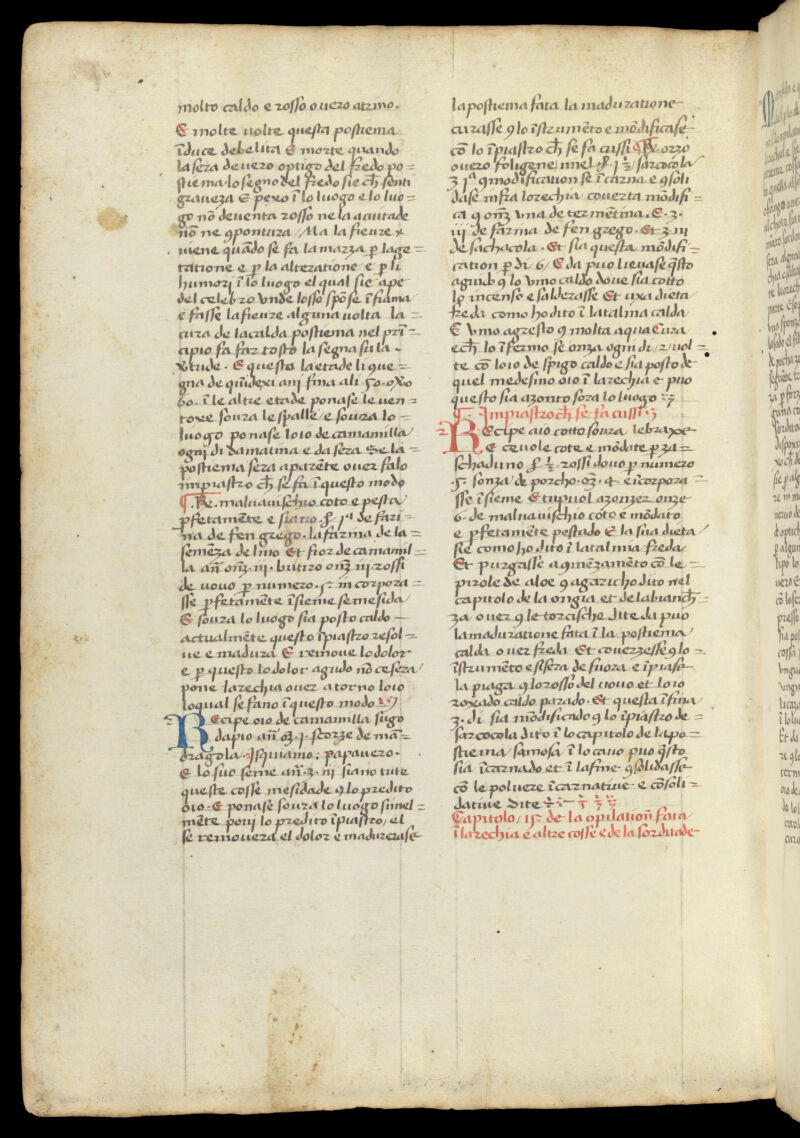 molto caldo e rosso o vero atrino.
E molte uolte questa postiema
īduce debelita E morte quando
la seza de vero optigo del fredo po=
stiema lo segno del fredo sie ch̄ senti
graueza E pexo ī lo luogo e lo luo=
go nō deuenta rosso ne la aguitade
nō ne ꝯpontura / Ma la fieure
viene quādo se fa la marza p̱ lage=
tatione e p̱ la alteratione e p̱ li
humori ī lo luogo el qual sie ape
del celebro vnde losso spōse ī fiama
e fasse la fieure alguna uolta la
cura de la calda postiema nel prī=
cipio fa far tosto la segnasu la
. E questo la etade li que=
gna de quīdexi ani fina ali 50. oxo
60. ī le altre etade ponase le uen=
toxe soura le spalle e soura lo
luogo ponase loio de camamilla
ogni dī damatina e da seza Se la
postiema seza aparēte ouer falo
impiastro ch̄ se fa ī questo modo
Re. maluauischio coto e pesta
p̱fetamēte e de fari=
na de fen grego. la farina de la
semēza de lino Et fior de camamil=
la añ. onz̄. iij. butiro onz̄ iij rossi
de uouo p̱ numero .5. incorpora=
sse p̱fetamēte īsieme se mesida
E soura lo luogo sia posto caldo
actualmēte questo īpiastro resol=
ue e madura E remoue lo dolor
e p̱ questo lo dolor agudo nō ceseza
pone larechia ouer atorno loio
loqual se fano ī questo modo
Recipe oio de camamilla sugo
dapio añ. oz̄. j. scorze de mā=
dragola. Isquiamo: papauero.
E lo suo seme añ. ʒ. iij siano tute
queste cosse mesidade ꝯ lo predito
oio. E ponase soura lo luogo simel=
mēte poni lo predito īpiastro / el
se remouera el dolor e madurerasse
la postiema fata la maduratione
curasse ꝯ lo īstrumēto e mōdificase
cō lo īpiastro ch̄ se fa cussi Re. orzo
ouero foligene mel sarcocola
ʒ jª ꝯ modification se īcarna e ꝯsoli
dase īnfra lorechia couerta mōdifi=
ca ꝯ onz̄ vna de termētina. E. ʒ.
iij de farina de fen grego. Et ʒ iij
de sachacola. Et sia questa mōdifi=
cation p̱ dī 6 / E da puo lieuase q̄sto
agiūto ꝯ lo vino caldo doue sia cotto
lo incenso e salderasse Et uxa dieta
freda como ho dito ī la talmia calda
E vino agresto ꝯ molta aqua Cura
ech̄ lo īfermo se onza ogni dī / 2 / uol=
te cō loio de spigo caldo e sia posto de
quel medesimo oio ī larechia e puo
questo sia azonto sora lo luogo
Impiastro ch̄ se fa cussi
Recipe aio cotto soura le braxe
E ceuole cote e mōdate p̱ za=
schaduno rossi douo p̱ numero
.5. sonza de porcho. oz̄. 4. e īcorpora
sse īsieme E tu puol azonzer onze
6. de maluauischio coto e mōdato
e p̱fetamēte pestado E la sua dieta
sie como ho dito ī la talmia freda.
Et purgasse acomēzamēto cō le
pirole de aloe ꝯ agaricho dito nel
capitolo de la ongia et de la bianch=
za ouer ꝯ le torcische dite da puo
la maduratione fata ī la postiema
calda ouer freda Et couerzesse ꝯ lo
īstrumēto e siseza de fuora e īpiase
la piaga ꝯ lo rosso del uouo et lo io
roxado caldo parado. Et questa īfina
3. dī sia modificado ꝯ lo īpiastro de
sarcocola dito ī lo capitolo de lapo=
stiema saniosa ī lo cauo puo q̄sto
sia īcarnado et ī la fine ꝯsolidasse
cō le poluere īcarnatiue e cōsoli=
datiue dite
Capitolo / 15 de la opilation̄ fata
ī larechia e altre cosse e de la sorduade